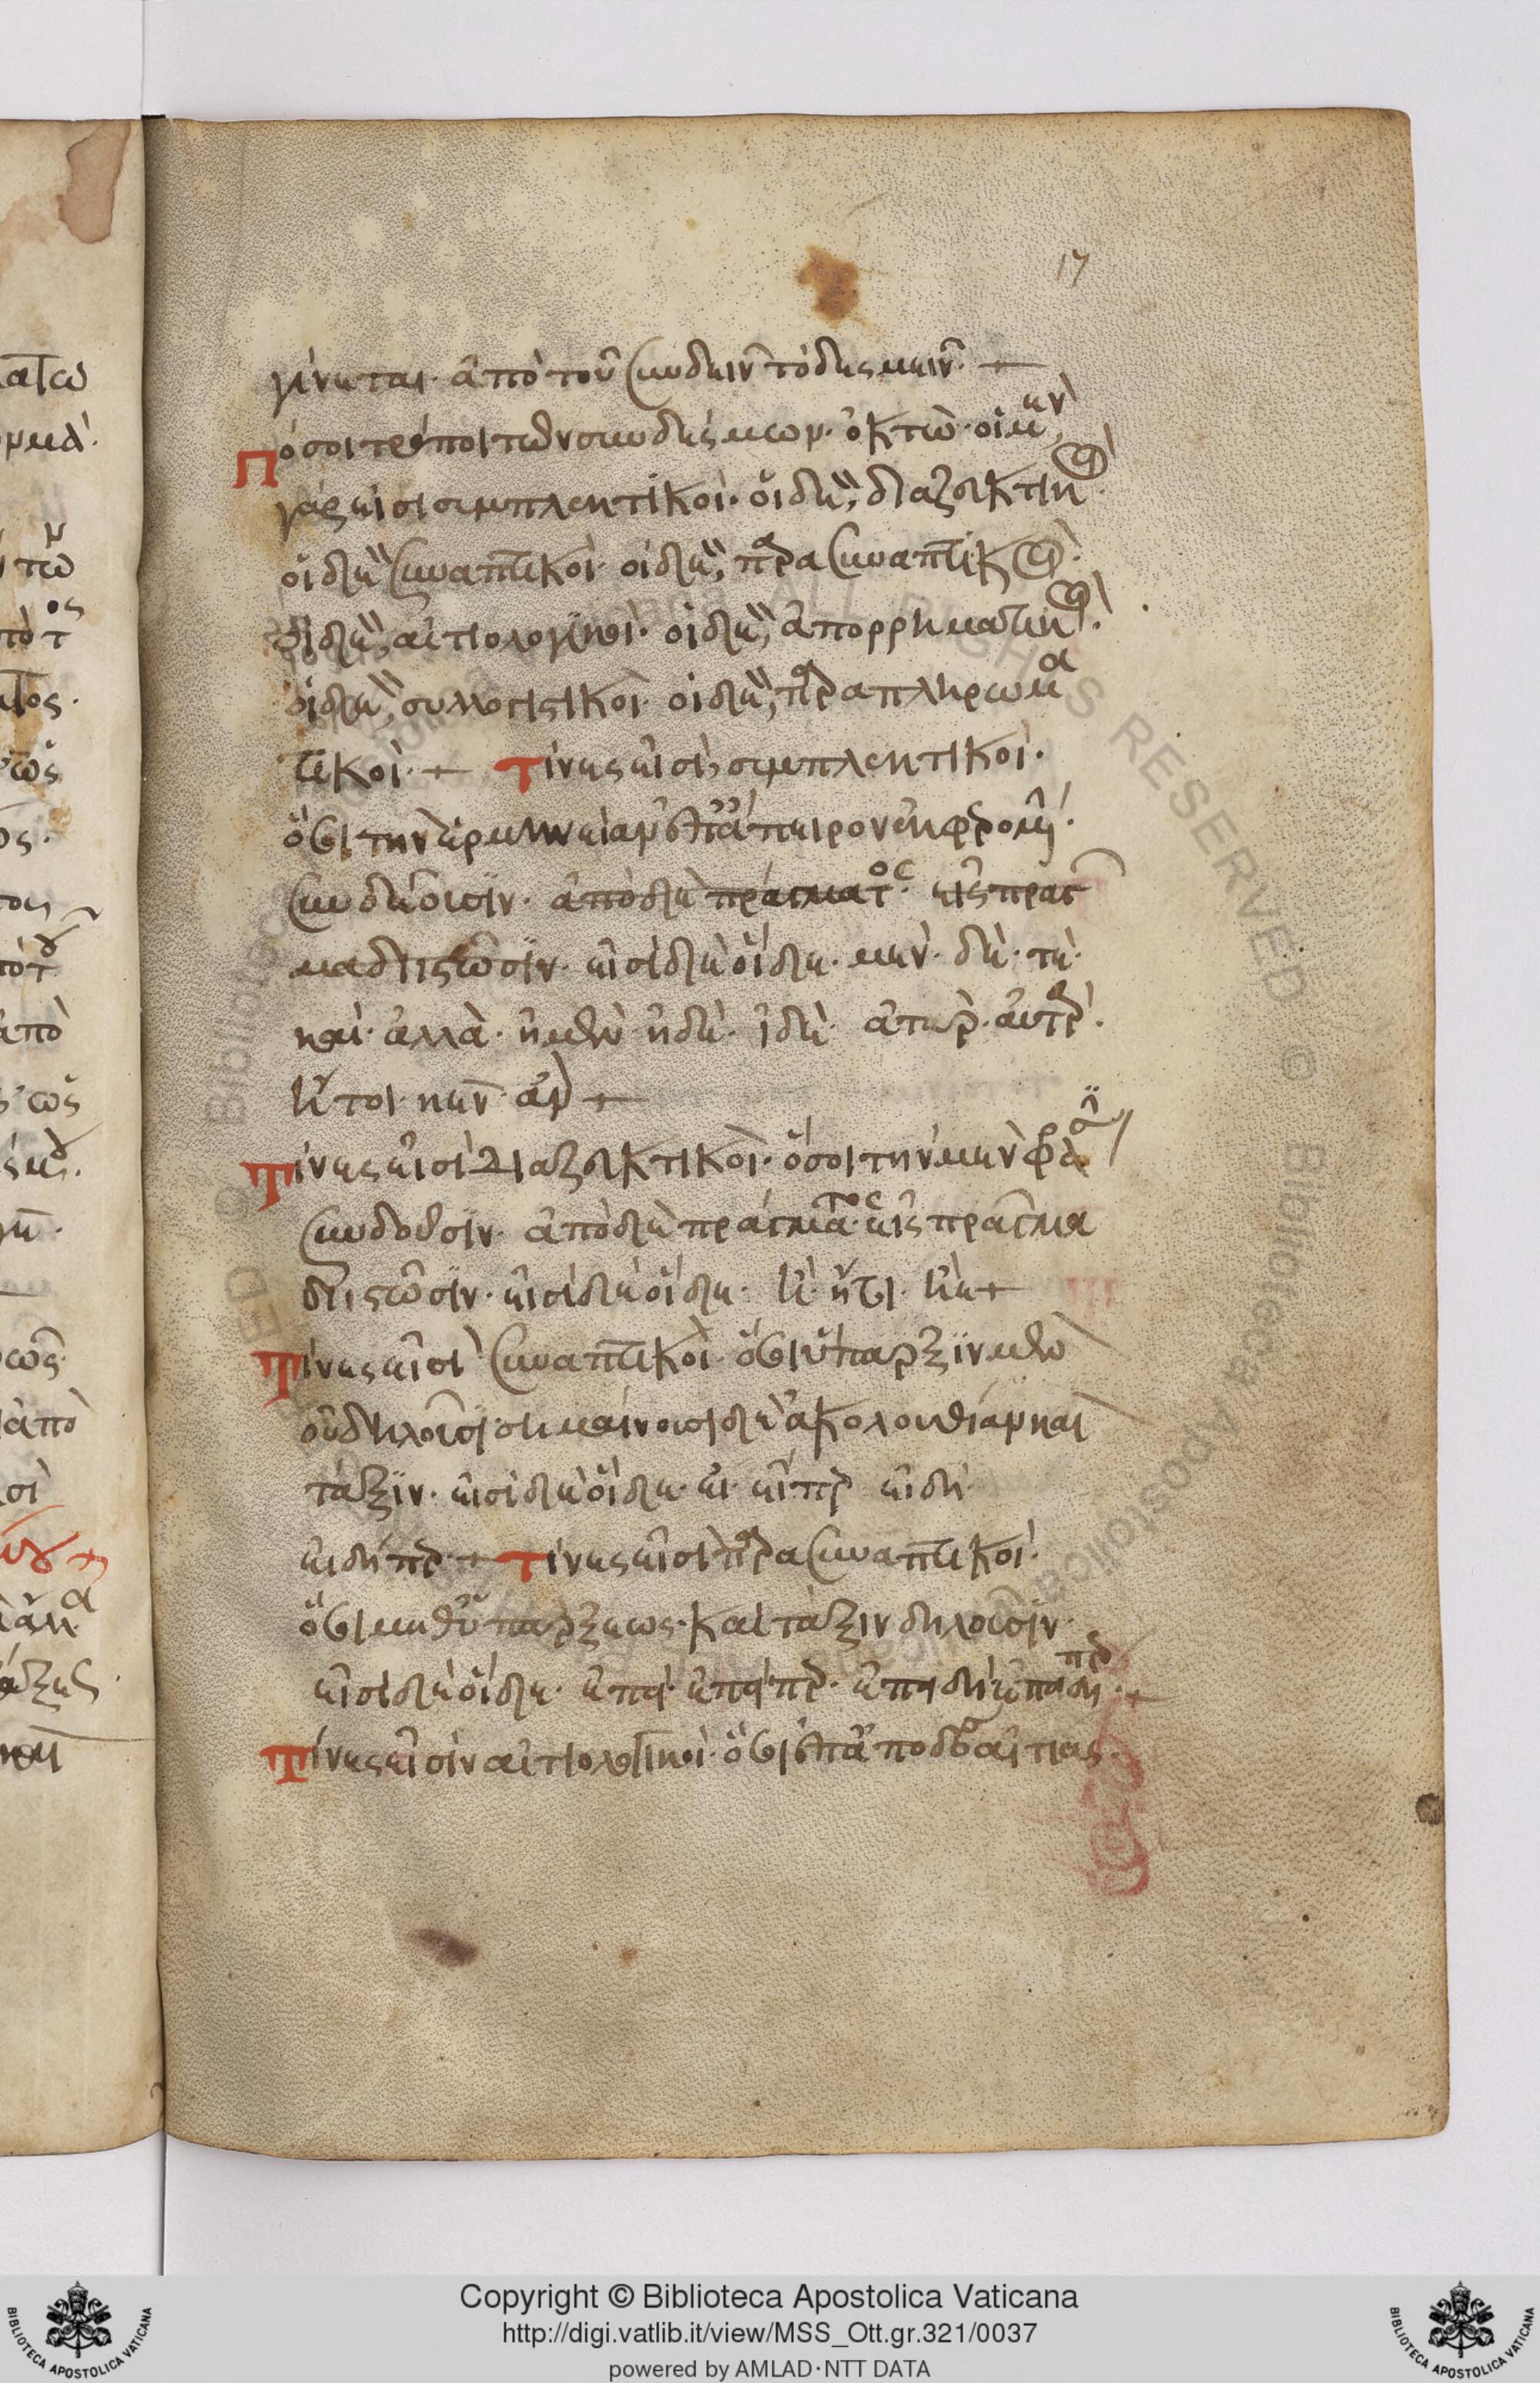 17
γίνεται· ἀπὸ τοῦ συνδεῖν τὸ δεσμεῖν·
Πόσοι τρόποι τῶν συνδέσμων· ὀκτῶ· οἱ μὲν
γάρ εἰσι συμπλεκτικοί· οἱ δὲ, διαζεκτικοί·
οἱ δὲ συναπτικοί· οἱ δὲ, παρασυναπτικοί·
οἱ δὲ, αἰτιολογικοί· οἱ δὲ, ἀπορρηματικοί·
οἱ δὲ, συλλογιστικοί· οἱ δὲ, παραπληρωμα
τικοί· Τίνες εἰσὶ, συμπλεκτικοί·
ὅσοι τὴν ἑρμηνείαν ἐπάπειρον ἐκφερομέ
συνδέουσιν· ἀπὸ δὲ πράγματος· εἰς πραγ
μα διιστῶσιν· εἰσὶ δὲ οἵδε· μέν· δέ· τέ·
καί· ἀλλά· ἠμέν· ἠδέ· ἰδέ· ἀτάρ· αὐτάρ·
ἤτοι· κέν· ἄν
Τίνες εἰσὶ διαζεκτικοί· ὅσοι τὴν μὲν φρά
συνδοῦσιν· ἀπὸ δὲ πράγματος· εἰς πρᾶγμα
διιστῶσιν· εἰσὶ δὲ οἵδε· ἤ· ἤτοι· ἠὲ
Τίνες εἰσὶ συναπτικοί· ὅσοι ὕπαρξιν μὲν
οὐ δηλοῦσι· σημαίνουσι δὲ ἀκολουθίαν καὶ
τάξιν· εἰσὶ δὲ οἵδε· εἰ· εἴπερ εἰδή·
εἰδήπερ· Τίνες εἰσὶ παρασυναπτικοί·
ὅσοι μεθ' ὑπάρξεως· καὶ τάξιν δηλοῦσιν·
εἰσὶ δὲ οἵδε· ἐπεί· ἐπείπερ· ἐπειδή· ἐπειδήπερ·
Τίνες εἰσὶν αἰτιολογικοί· ὅσοι ἐπ' ἀποδόσει αἰτίας·
Copyright © Biblioteca Apostolica Vaticana
http://digi.vatlib.it/view/MSS_Ott.gr.321/0037
powered by AMLAD·NTT DATA